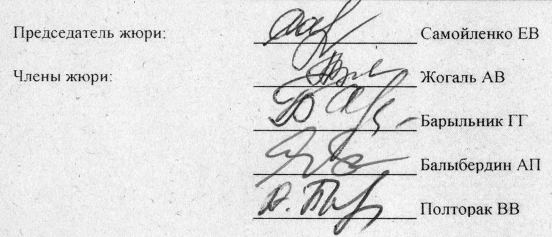 Председатель жюри: Самойленко ЕВ
Члены жюри: Жогаль АВ
Барыльник ГГ
Балыбердин АП
Полторак ВВ